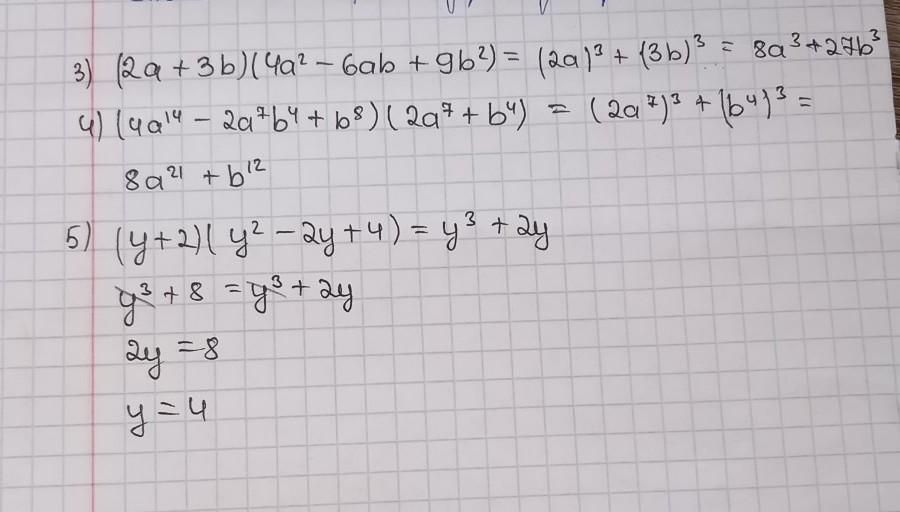 3) (2a + 3b)(4a² - 6ab + 9b²) = (2a)³ + (3b)³ = 8a³ + 27b³
4) (4a¹⁴ - 2a⁷b⁴ + b⁸)(2a⁷ + b⁴) = (2a⁷)³ + (b⁴)³ =
8a²¹ + b¹²
5) (y + 2)(y² - 2y + 4) = y³ + 2y
y³ + 8 = y³ + 2y
2y = 8
y = 4